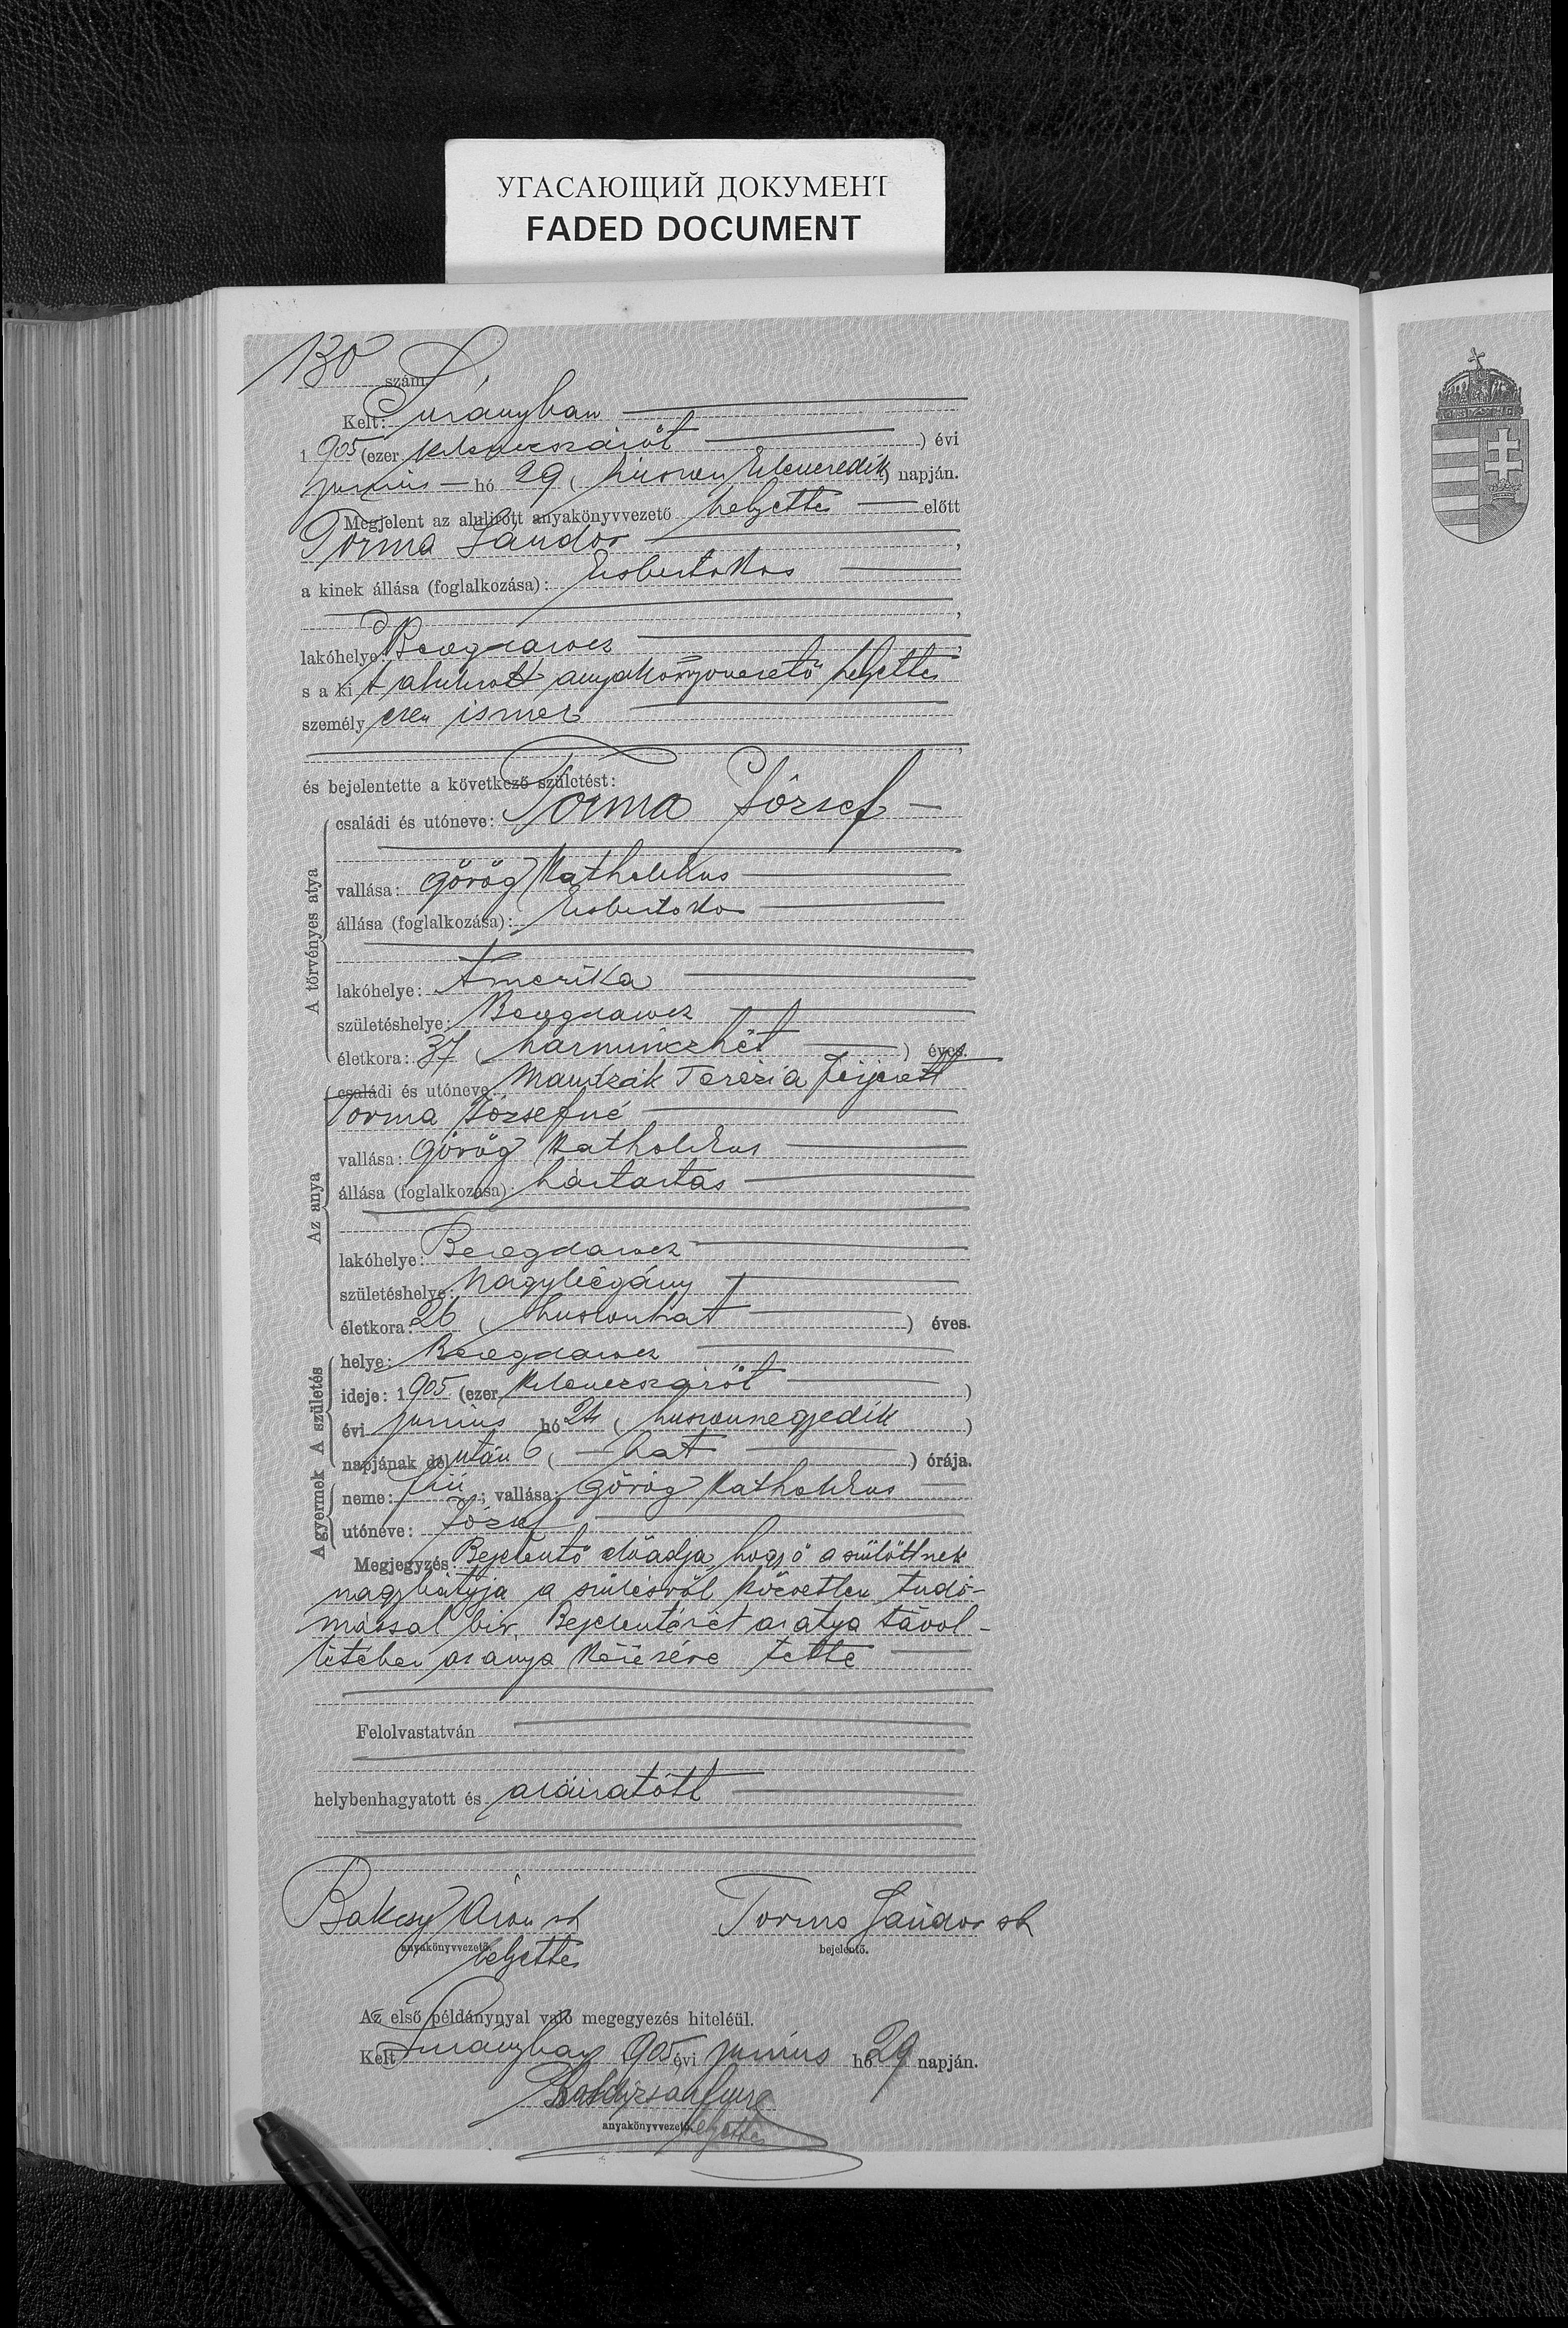 УГАСАЮЩИЙ ДОКУМЕНТ
FADED DOCUMENT
130 szám.
Kelt: Surányban
1 905 (ezer kilenczszázöt ) évi
junius hó 29 ( huszon kilenczedik) napján.
Megjelent az alulirott anyakönyvvezető helyettes előtt
Torma Sándor ,
a kinek állása (foglalkozása):
,
lakóhelye Beregdarocz ,
s a ki t alulirott anyakönyvvezető helyettes
személy esen ismer
,
és bejelentette a következő születést:
A törvényes atya
családi és utóneve: Torma József
vallása: görög katholikus
állása (foglalkozása):
lakóhelye: Amerika
születéshelye: Beregdarocz
életkora: 37 ( harminczhét ) éves.
Az anya
családi és utóneve: Terézia férjezett
Torma Józsefné
vallása: görög katholikus
állása (foglalkozása): háztartás
lakóhelye: Beregdarocz
születéshelye:
életkora: 26 ( huszonhat ) éves.
A születés
helye: Beregdarocz
ideje: 1 905 (ezer kilenczszázöt )
évi junius hó 24 ( huszonnegyedik )
napjának dél után 6 ( hat ) órája.
A gyermek
neme: fiú ; vallása: görög katholikus
utóneve: József
Megjegyzés: Bejelentő előadja, hogy ő a szülöttnek
nagybátyja a szülésről közvetlen tudo-
mással bir. Bejelentését az atya távol-
létében az anya kérésére tette
Felolvastatván
helybenhagyatott és aláiratott
sk Torma Sándor sk
anyakönyvvezető helyettes bejelentő.
Az első példánynyal való megegyezés hiteléül.
Kelt Surányban 905 évi junius hó 29 napján.
anyakönyvvezető helyettes